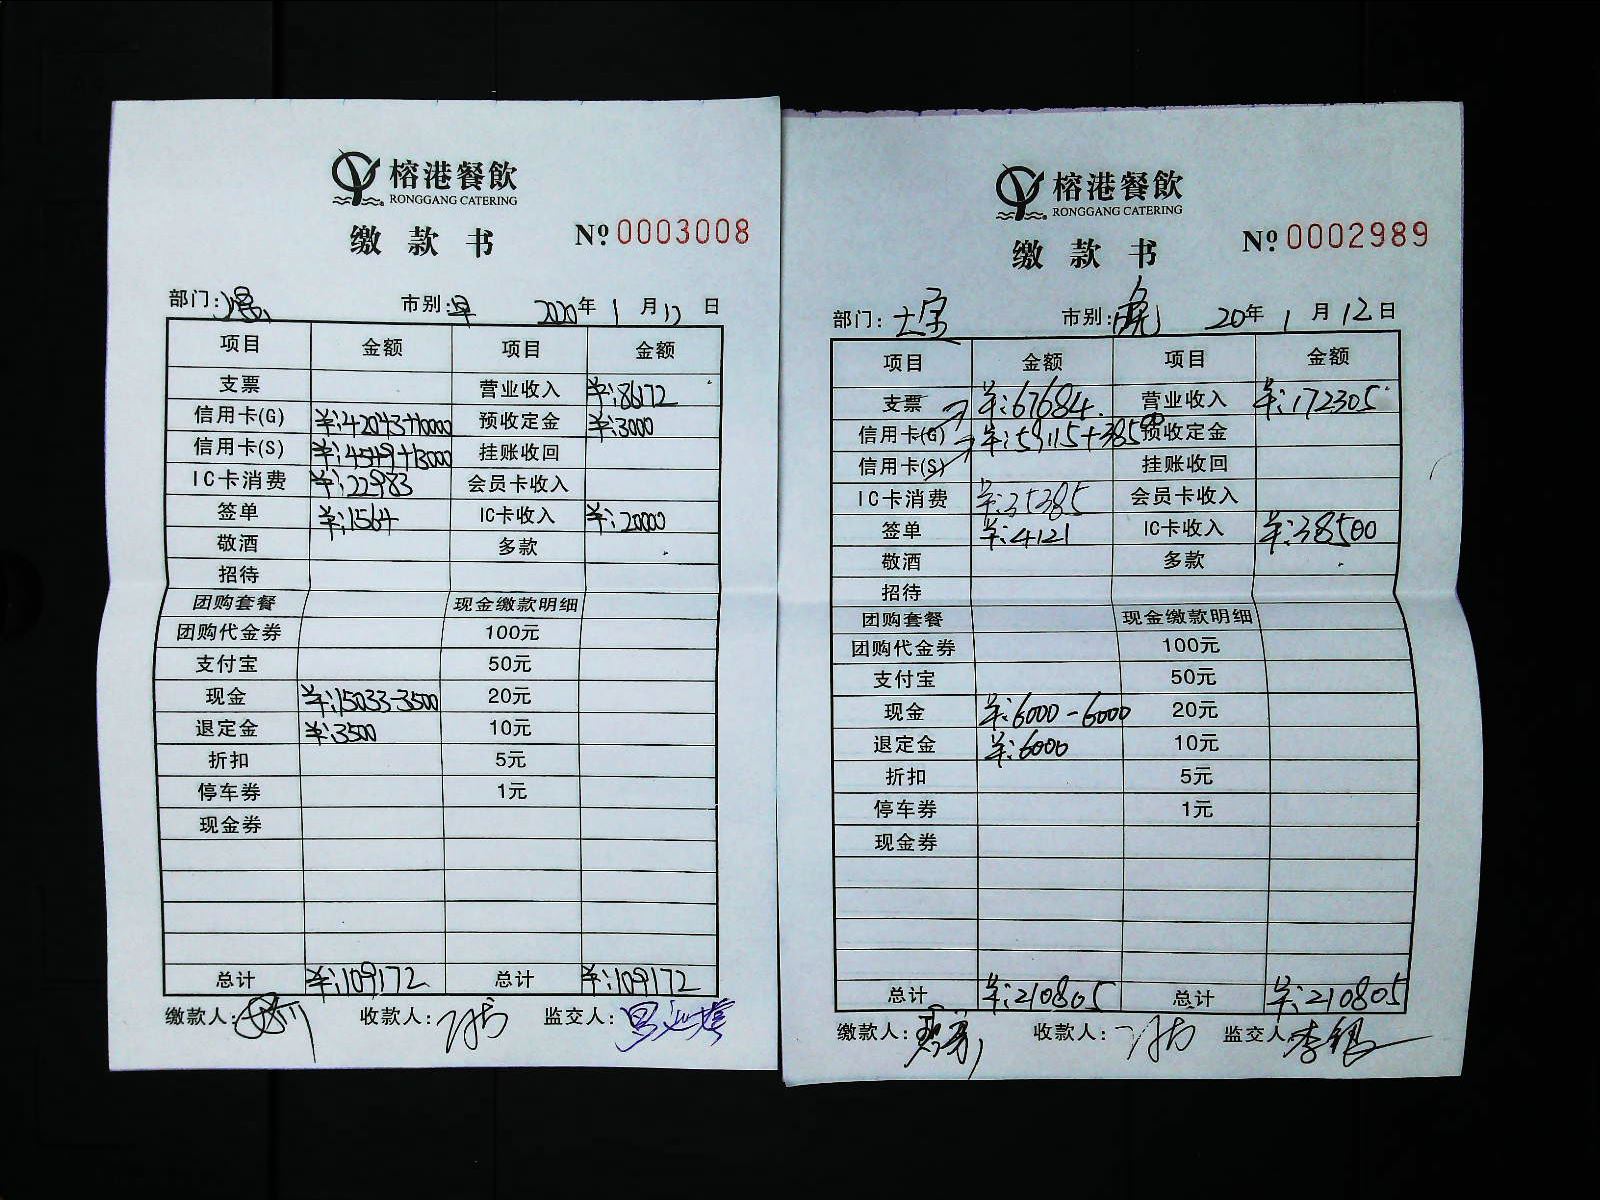 榕港餐飲
RONGGANG CATERING
缴款书 №0003008
部门: 市别:早 2020年1月12日
项目 金额 项目 金额
支票 营业收入 ¥:86172
信用卡(G) ¥:42043+10000 预收定金 ¥:3000
信用卡(S) ¥:4549+13000 挂账收回
IC卡消费 ¥:22983 会员卡收入
签单 ¥:1564 IC卡收入 ¥:20000
敬酒 多款
招待
团购套餐 现金缴款明细
团购代金券 100元
支付宝 50元
现金 ¥:15033-3500 20元
退定金 ¥:3500 10元
折扣 5元
停车券 1元
现金券
总计 ¥:109172 总计 ¥:109172
缴款人: 收款人: 监交人:
榕港餐飲
RONGGANG CATERING
缴款书 №0002989
部门: 市别: 2020年1月12日
项目 金额 项目 金额
支票 ¥:67684. 营业收入 ¥:172305
信用卡(G) ¥:59115+38500 预收定金
信用卡(S) 挂账收回
IC卡消费 ¥:35385 会员卡收入
签单 ¥:4121 IC卡收入 ¥:38500
敬酒 多款
招待
团购套餐 现金缴款明细
团购代金券 100元
支付宝 50元
现金 ¥:6000-6000 20元
退定金 ¥:6000 10元
折扣 5元
停车券 1元
现金券
总计 ¥:210805 总计 ¥:210805
缴款人: 收款人: 监交人: